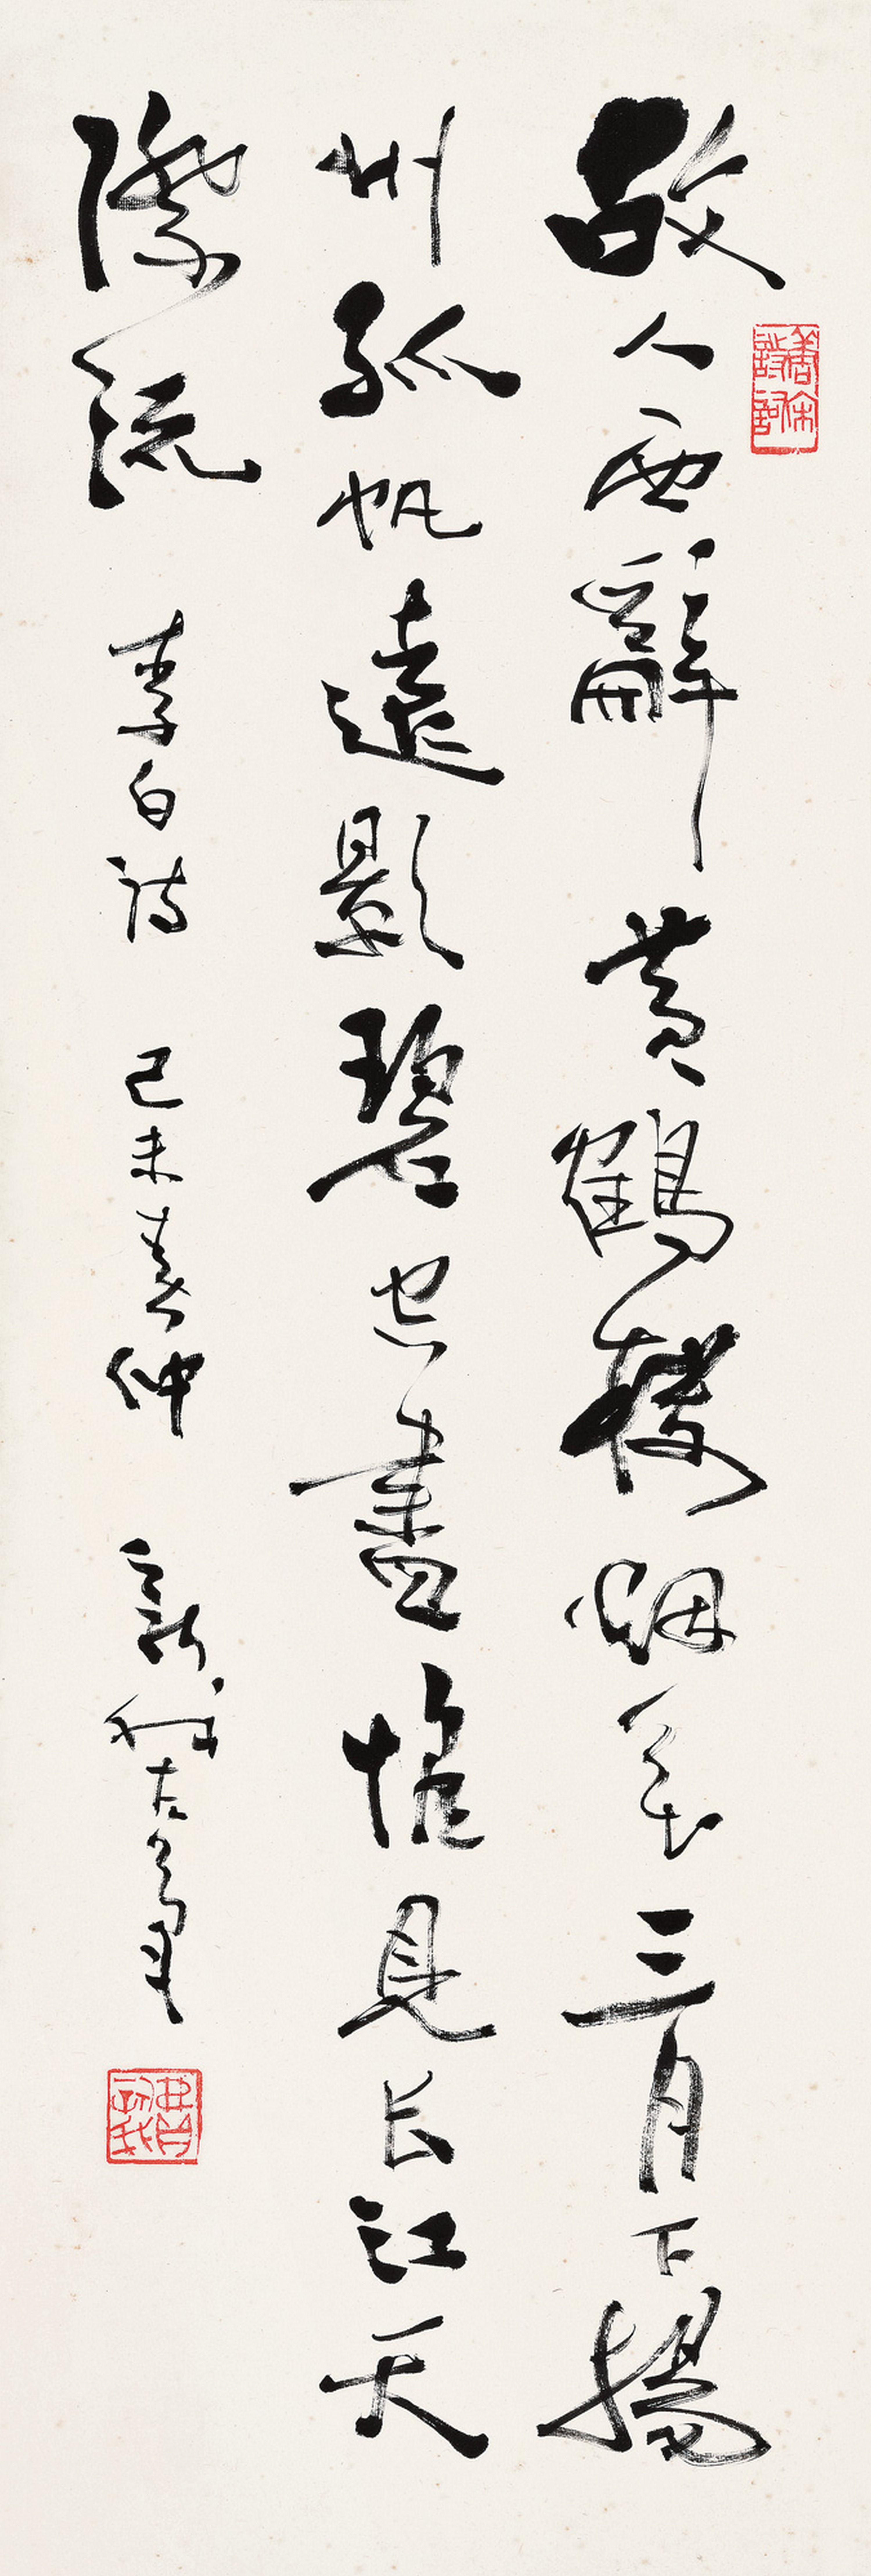 故人西辭黄鶴樓烟花三月下揚
州孤帆遠影碧空盡惟見长江天
際流 李白詩 己未春仲